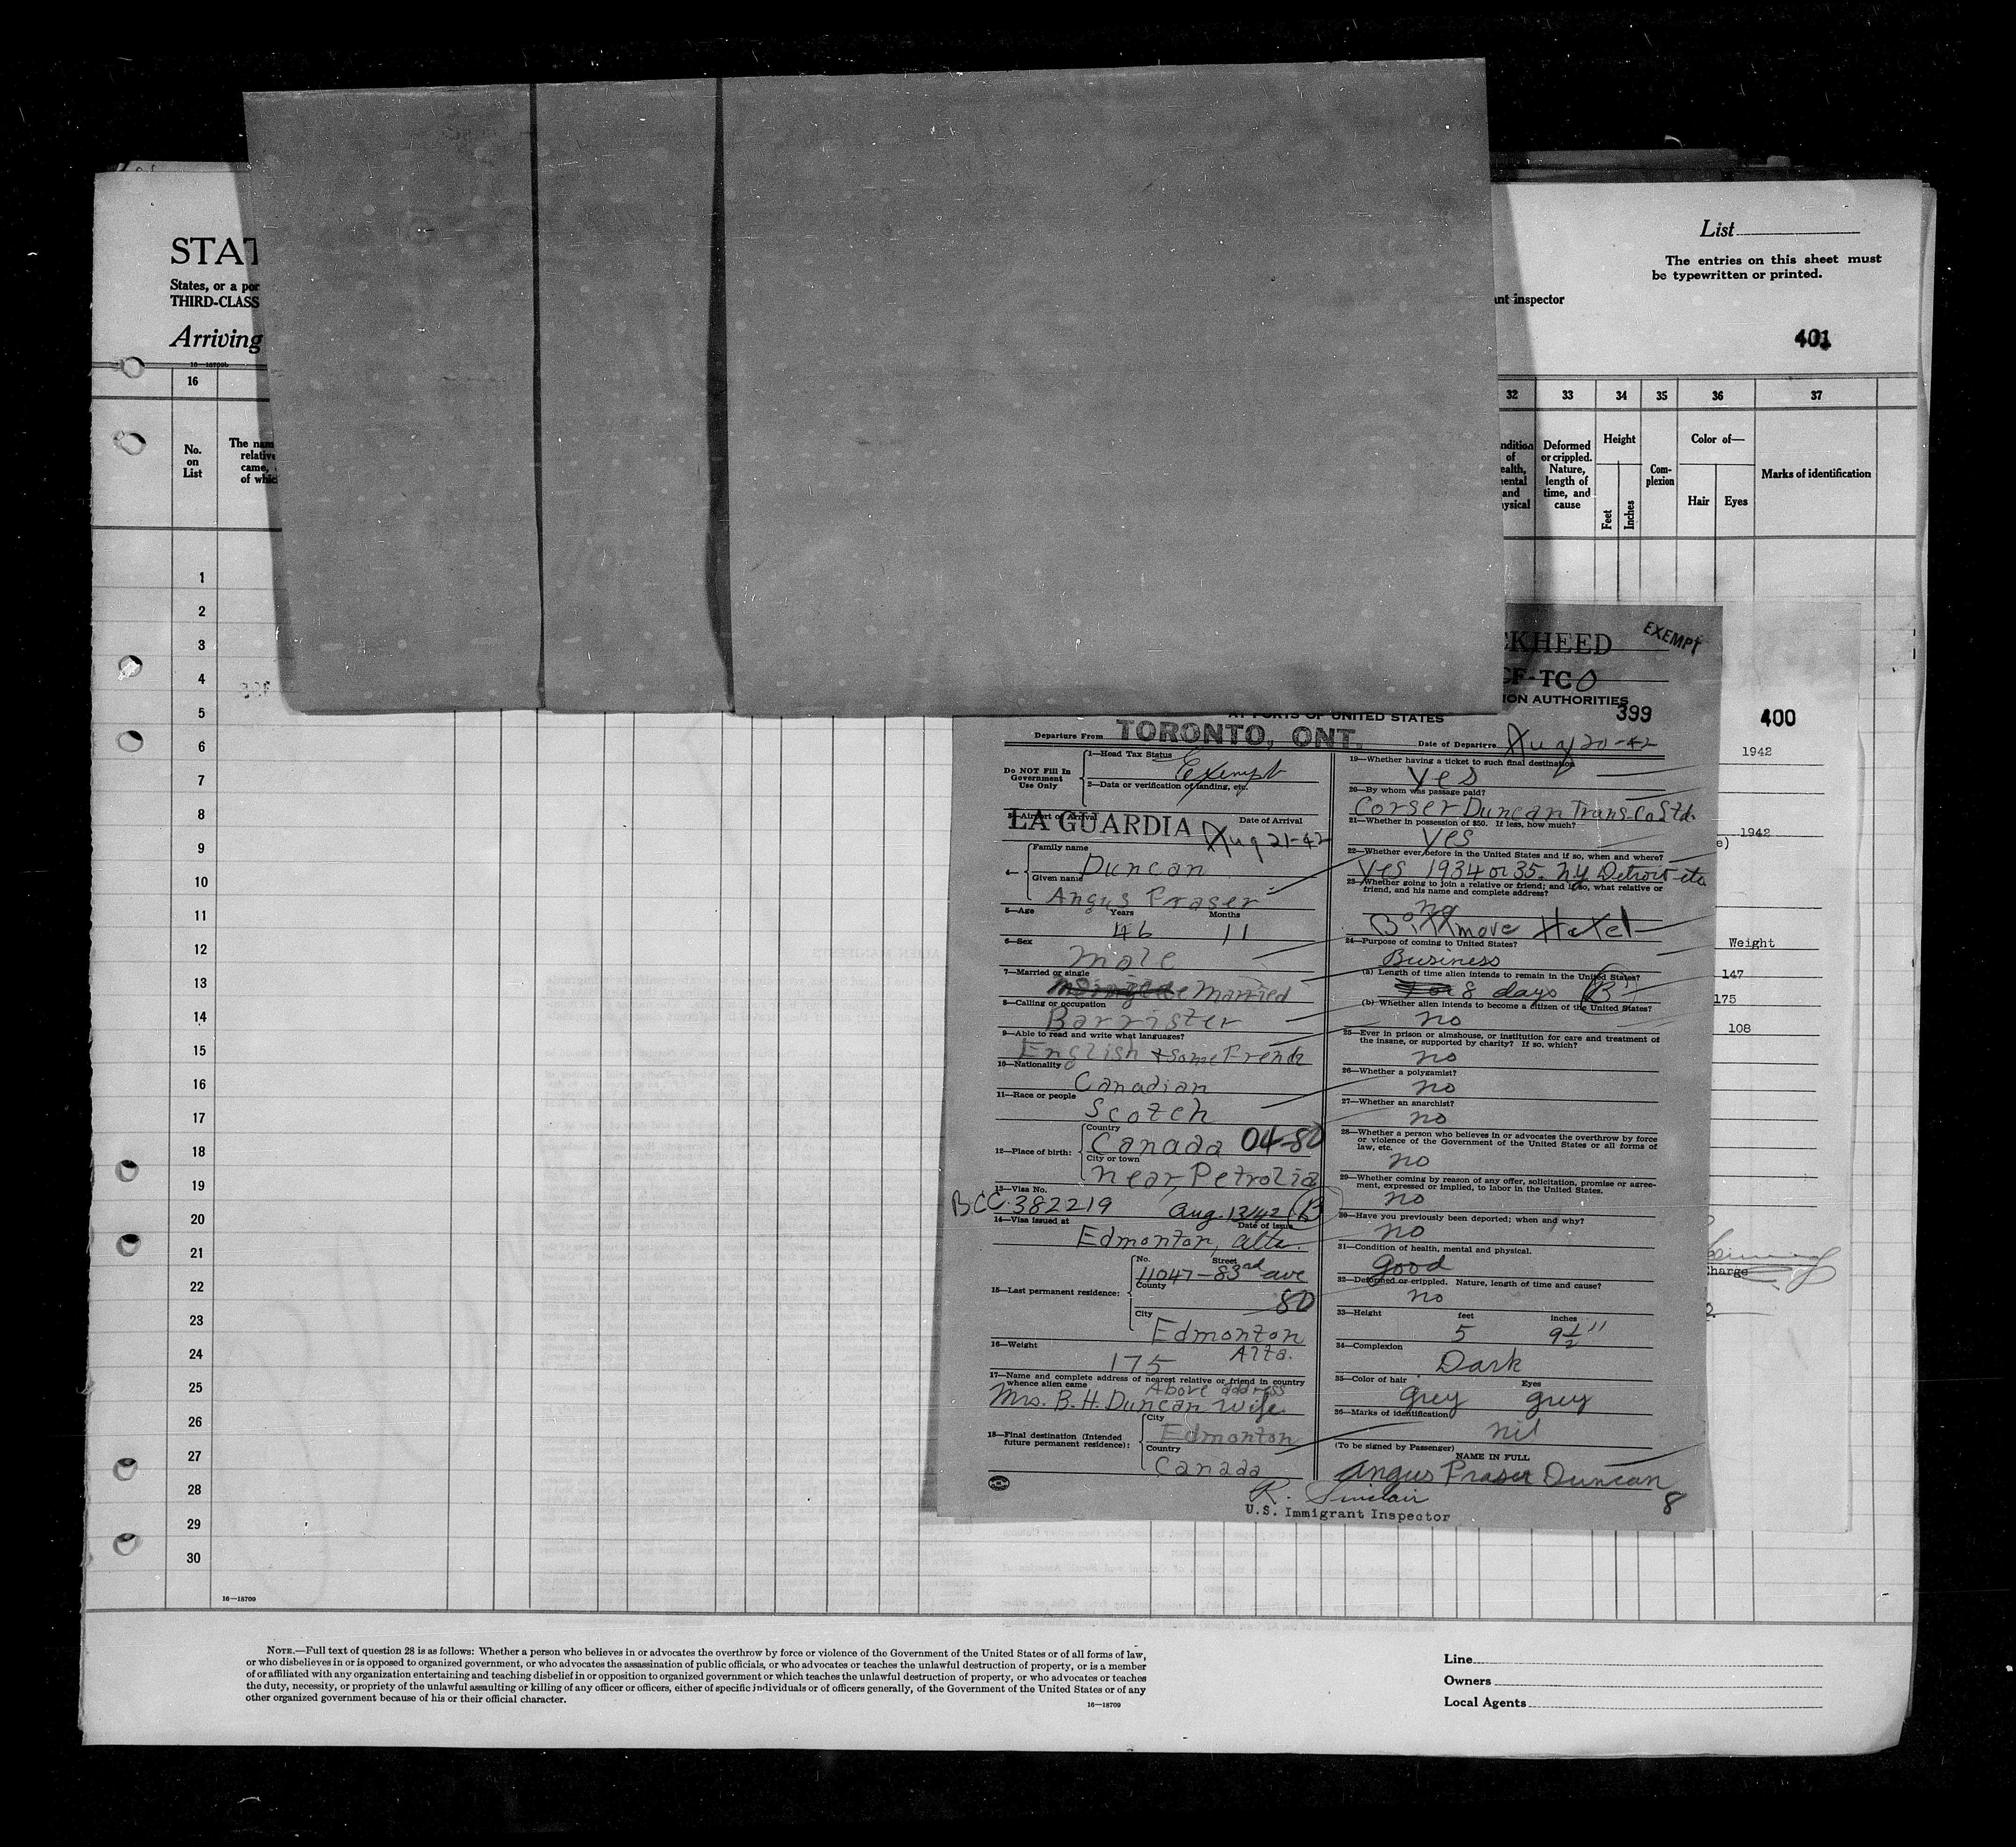 STAT
States, or a por
THIRD-CLASS
Arriving
16—18709b
List
The entries on this sheet must
be typewritten or printed.
ant inspector
401
16
No.
on
List
The nam
relative
came,
of whic
32
ndition
of
ealth,
ental
and
ysical
33
Deformed
or crippled.
Nature,
length of
time, and
cause
34
Height
Feet
Inches
35
Com-
plexion
36
Color of—
Hair
Eyes
37
Marks of identification
1
2
3
4
5
6
7
8
9
10
11
12
13
14
15
16
17
18
19
20
21
22
23
24
25
26
27
28
29
30
16—18709
CKHEED
EXEMPT
CF-TCO
ION AUTHORITIES
399
AT PORTS OF UNITED STATES
Departure From TORONTO, ONT.
Date of Departure Aug 20-42
Do NOT Fill In
Government
Use Only
1—Head Tax Status
Exempt
2—Data or verification of landing, etc.
3—Airport of Arrival
Date of Arrival
LA GUARDIA Aug 21-42
4—
Family name
Duncan
Given name
Angus Fraser
5—Age
Years
Months
46 11
6—Sex
male
7—Married or single
Married
8—Calling or occupation
Barrister
9—Able to read and write what languages?
English & some French
10—Nationality
Canadian
11—Race or people
Scotch
12—Place of birth:
Country
Canada 04-80
City or town
near Petrolia
13—Visa No.
BCC 382219 Aug. 13/42 B
14—Visa issued at
Date of issue
Edmonton, Alta.
15—Last permanent residence:
No.
Street
11047-83rd ave
County
80
City
Edmonton
Alta.
16—Weight
175
17—Name and complete address of nearest relative or friend in country
whence alien came
Above address
Mrs. B. H. Duncan wife.
18—Final destination (Intended
future permanent residence):
City
Edmonton
Country
Canada
19—Whether having a ticket to such final destination
Yes
20—By whom was passage paid?
Corser Duncan Trans. Co Ltd.
21—Whether in possession of $50. If less, how much?
Yes
22—Whether ever before in the United States and if so, when and where?
Yes 1934 or 35. N.Y Detroit etc
23—Whether going to join a relative or friend; and if so, what relative or
friend, and his name and complete address?
no
Hotel
24—Purpose of coming to United States?
Business
(a) Length of time alien intends to remain in the United States?
8 days B
(b) Whether alien intends to become a citizen of the United States?
no
25—Ever in prison or almshouse, or institution for care and treatment of
the insane, or supported by charity? If so, which?
no
26—Whether a polygamist?
no
27—Whether an anarchist?
no
28—Whether a person who believes in or advocates the overthrow by force
or violence of the Government of the United States or all forms of
law, etc.
no
29—Whether coming by reason of any offer, solicitation, promise or agree-
ment, expressed or implied, to labor in the United States.
no
30—Have you previously been deported; when and why?
no
31—Condition of health, mental and physical.
good
32—Deformed or crippled. Nature, length of time and cause?
no
33—Height
feet
inches
5 9½"
34—Complexion
Dark
35—Color of hair
Eyes
grey grey
36—Marks of identification
nil
(To be signed by Passenger)
NAME IN FULL
Angus Fraser Duncan
8
R. Sinclair
U.S. Immigrant Inspector
400
1942
1942
e)
Weight
147
175
108
Charge
NOTE.—Full text of question 28 is as follows: Whether a person who believes in or advocates the overthrow by force or violence of the Government of the United States or of all forms of law,
or who disbelieves in or is opposed to organized government, or who advocates the assassination of public officials, or who advocates or teaches the unlawful destruction of property, or is a member
of or affiliated with any organization entertaining and teaching disbelief in or opposition to organized government or which teaches the unlawful destruction of property, or who advocates or teaches
the duty, necessity, or propriety of the unlawful assaulting or killing of any officer or officers, either of specific individuals or of officers generally, of the Government of the United States or of any
other organized government because of his or their official character.
16—18709
Line
Owners
Local Agents